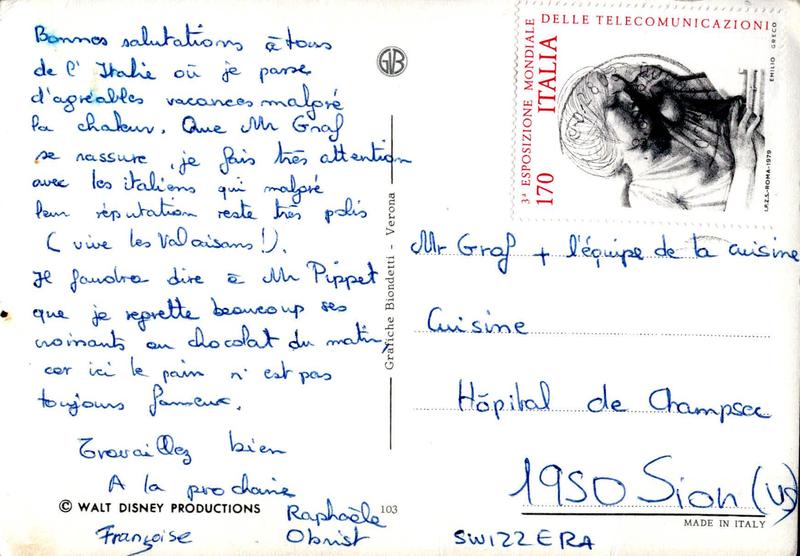 Bonnes salutations à tous
de l'Italie où je passe
d'agréables vacances malgré
la chaleur. Que Mr Graf
se rassure, je fais très attention
avec les italiens qui malgré
leur réputation reste très polis
(vive les Valaisans!).
Il faudra dire à Mr Pippet
que je regrette beaucoup ses
croissants au chocolat du matin,
car ici le pain n'est pas
toujours fameux.
Travaillez bien
A la prochaine
© WALT DISNEY PRODUCTIONS 103
Françoise
Raphaële
Obrist
GVB
Grafiche Biondetti - Verona
3ª ESPOSIZIONE MONDIALE
DELLE TELECOMUNICAZIONI
170 ITALIA
EMILIO GRECO
I.P.Z.S.-ROMA-1979
Mr Graf + l'équipe de la cuisine
Cuisine
Hôpital de Champsec
1950 Sion (VS)
MADE IN ITALY
SWIZZERA